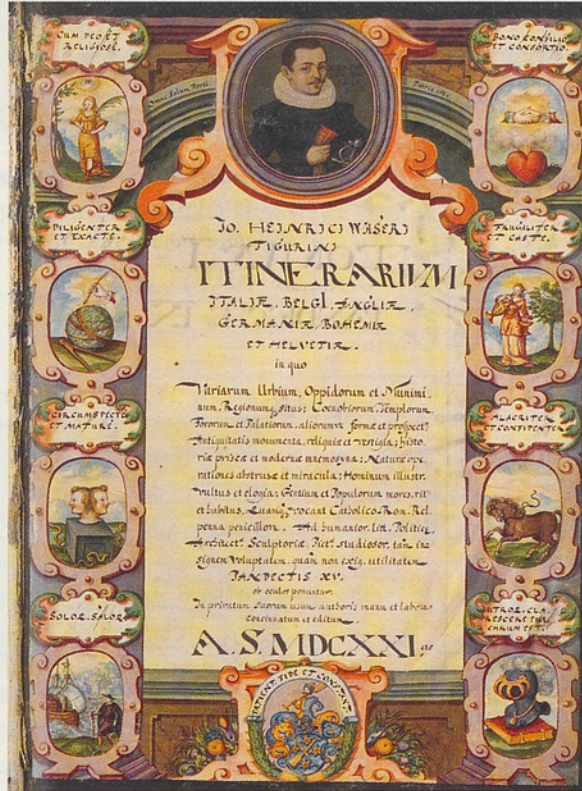 CUM DEO ET
RELIGIOSE.
BONO CONSILIO
ET CONSORTIO.
Omne Solum Forti
Patria
DILIGENTER
ET EXACTE.
FRUGALITER
ET CASTE.
CIRCUMSPECTE
ET MATURE.
ALACRITER
ET CONFIDENTER
UTROQ. CLA,
RESCERE PUL,
CHRUM EST.
IO. HEINRICI WASERI
TIGURINI
ITINERARIVM
ITALIÆ, BELGI, ANGLIÆ,
GERMANIÆ, BOHEMIÆ
ET HELVETIÆ.
in quo
Variarum Urbium, Oppidorum et Munimi,
num, Regionumq; situs; Coenobiorum, Templorum
Fororum et Palatiorum, aliorumve formæ et prospect
Antiquitatis monumenta, reliquiæ et vestigia; histo,
riæ priscæ et modernæ mnemosyna; Naturæ ope,
rationes abstrusæ et miracula; Hominum illustr.
vultus et elogia; Gentium et Populorum mores, rit
et habitus, Quamq; vocant Catholico-Rom. Rel.
penna penicilloq. Ad humanior. lit. Politicæ,
Architect. Sculptoriæ, Pict. studiosor. tam in,
signem Voluptatem, quam non exig. utilitatem
PANDECTIS XV.
ob oculos ponuntur;
In privatum Suorum usum authoris manu et labore
concinnatum et editum.
A. S. MDCXXI.
FIDE ET